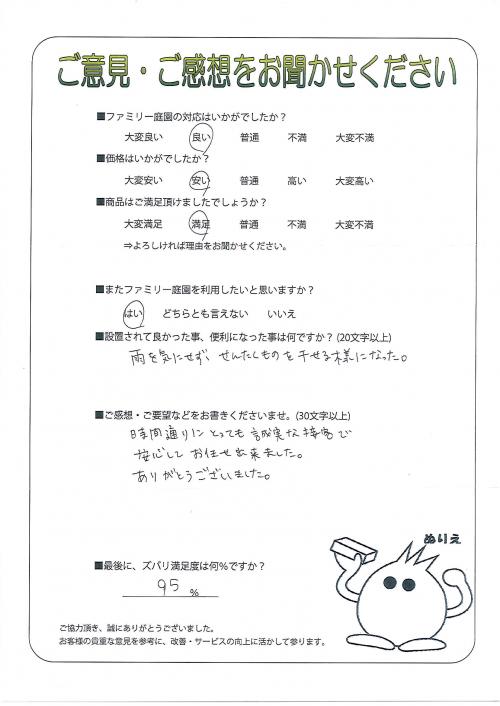 ご意見・ご感想をお聞かせください
■ファミリー庭園の対応はいかがでしたか？
大変良い 良い 普通 不満 大変不満
■価格はいかがでしたか？
大変安い 安い 普通 高い 大変高い
■商品はご満足頂けましたでしょうか？
大変満足 満足 普通 不満 大変不満
⇒よろしければ理由をお聞かせください。
■またファミリー庭園を利用したいと思いますか？
はい どちらとも言えない いいえ
■設置されて良かった事、便利になった事は何ですか？(20文字以上)
雨を気にせず、せんたくものを干せる様になった。
■ご感想・ご要望などをお書きくださいませ。(30文字以上)
時間通りにとっても誠実な接客で
安心してお任せ出来ました。
ありがとうございました。
ぬりえ
■最後に、ズバリ満足度は何％ですか？
95 %
ご協力頂き、誠にありがとうございました。
お客様の貴重な意見を参考に、改善・サービスの向上に活かして参ります。